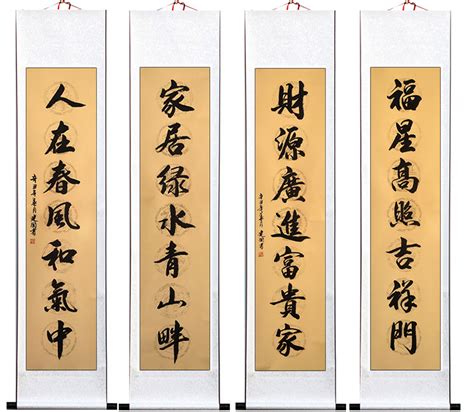 福星高照吉祥門
財源廣進富貴家
家居绿水青山畔
人在春風和氣中